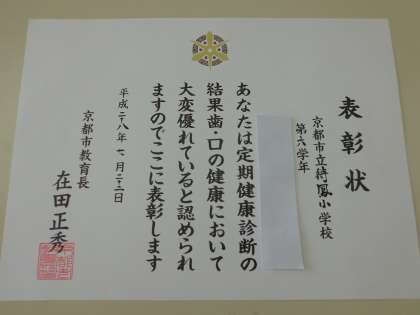 表彰状
京都市立待鳳小学校
第六学年
あなたは定期健康診断の
結果歯・口の健康において
大変優れていると認められ
ますのでここに表彰します
平成二十八年十一月二十二日
京都市教育長
在田正秀